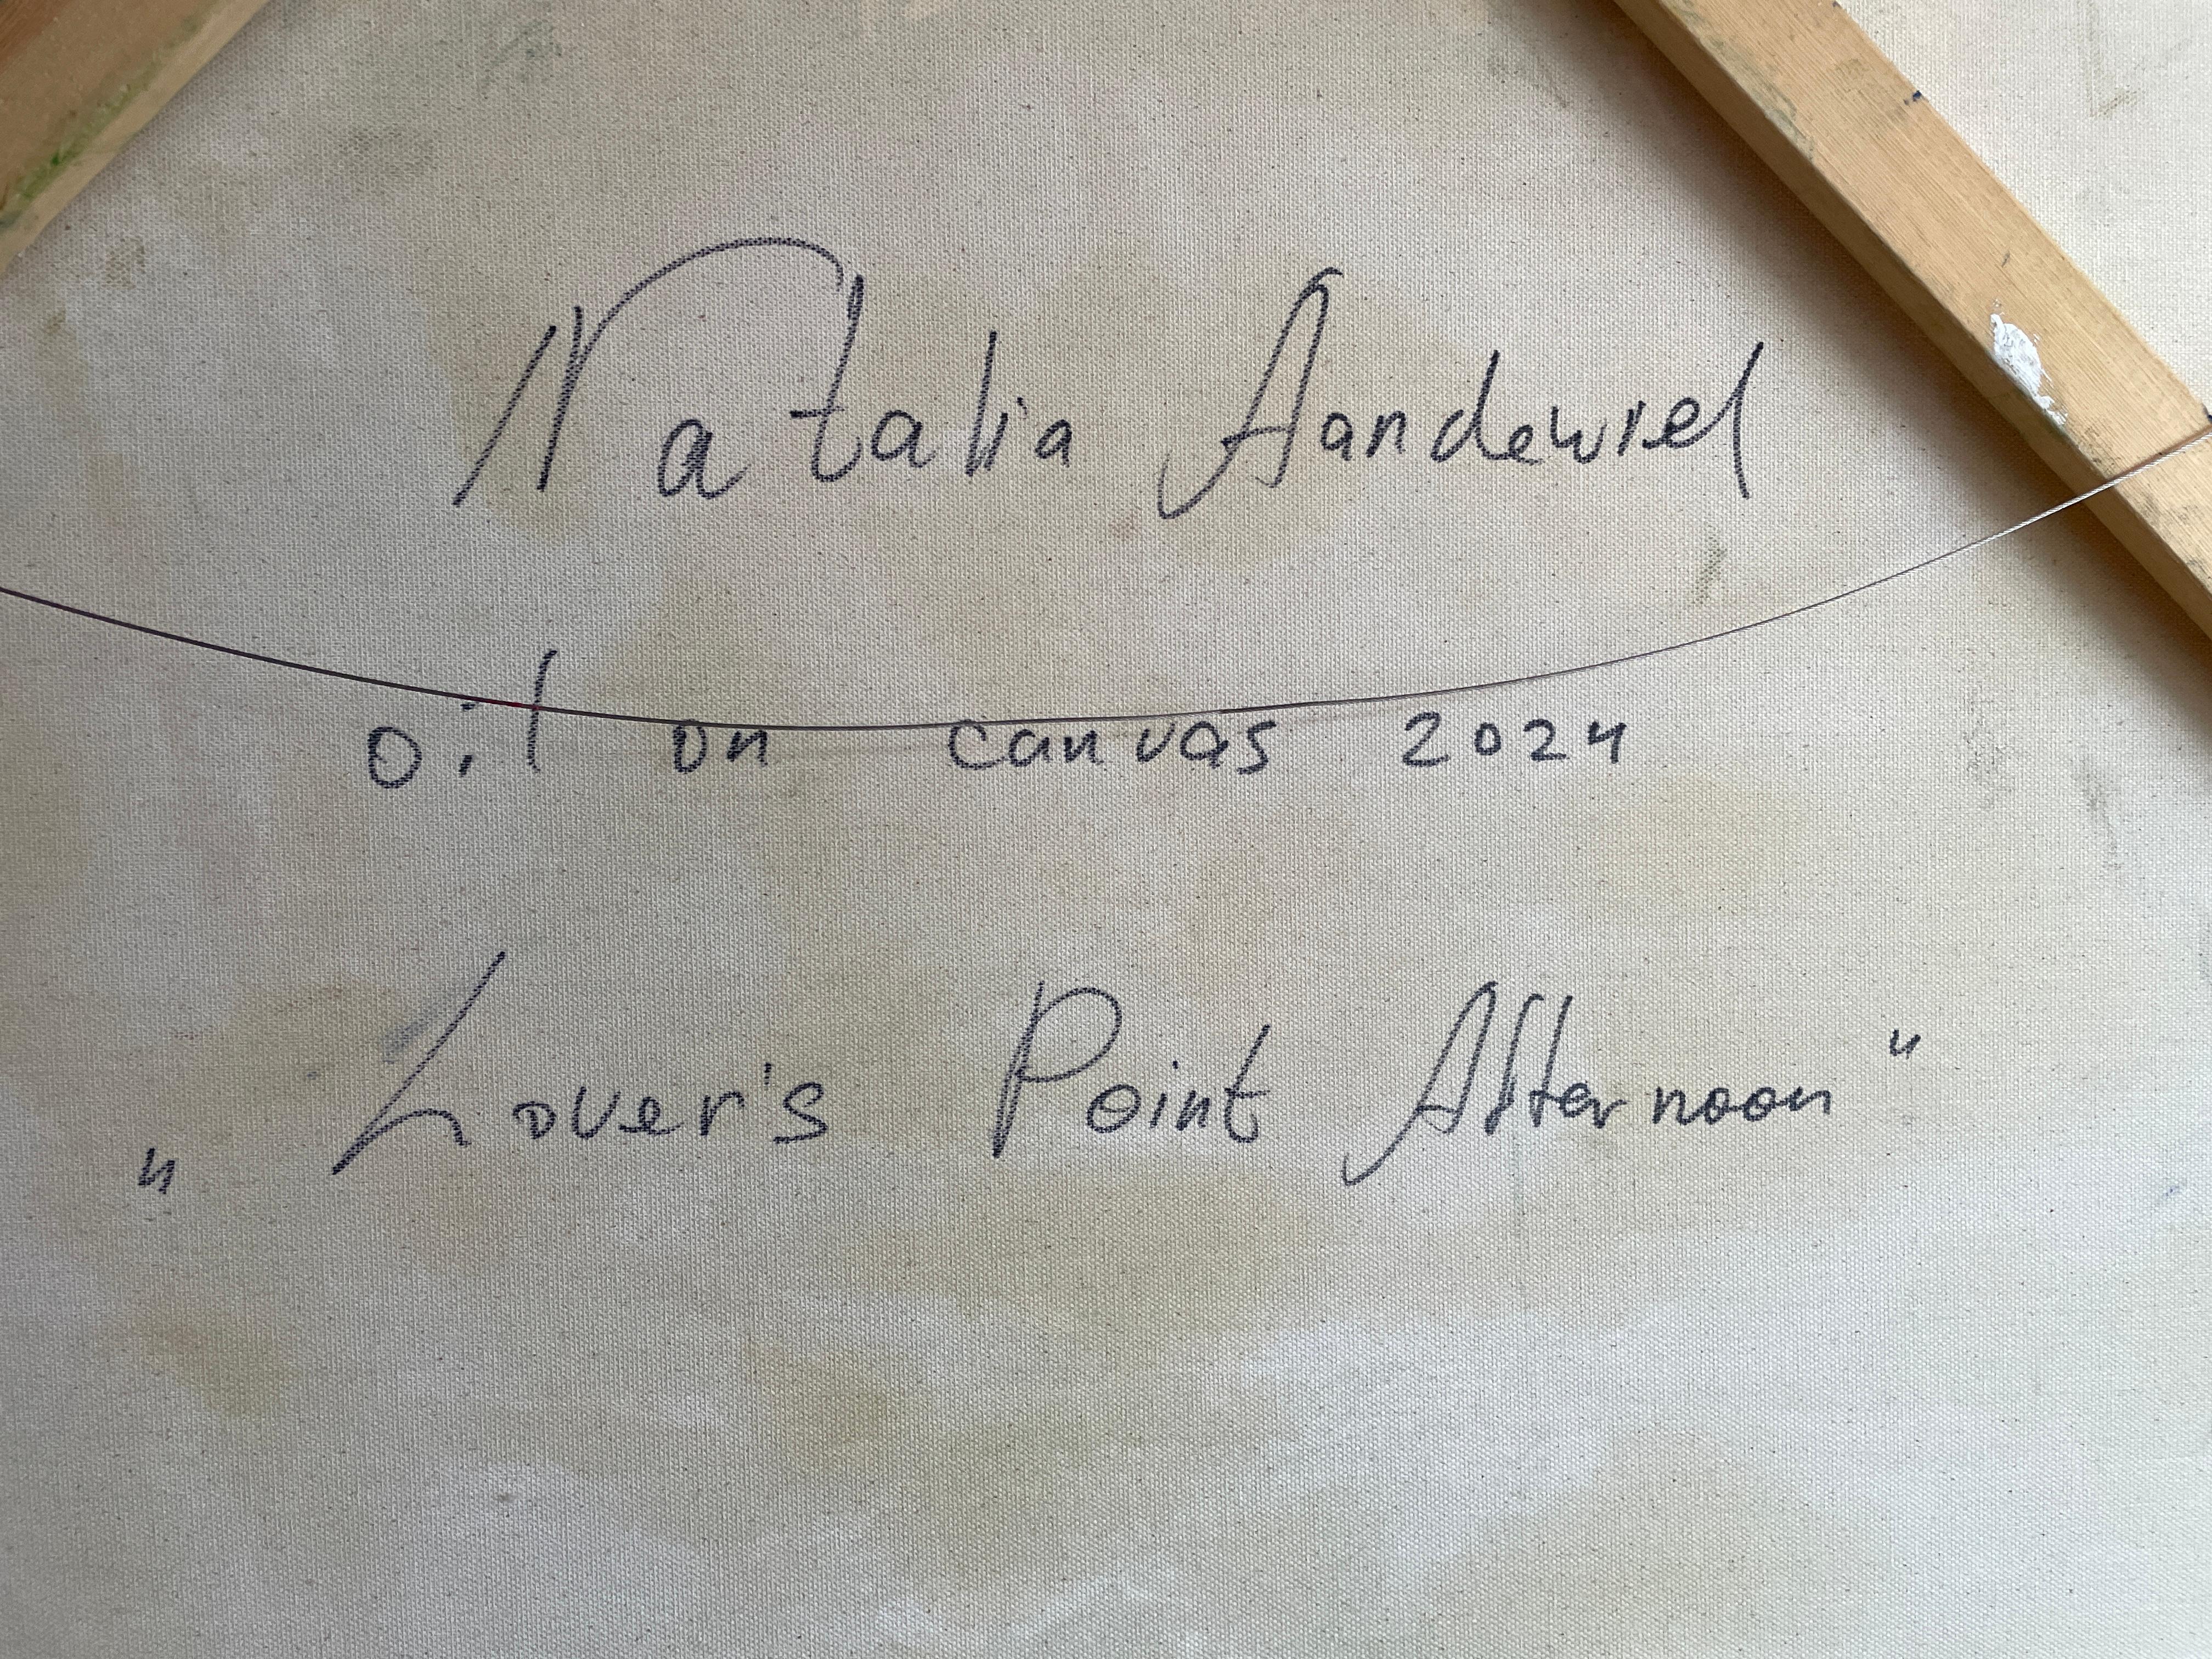 Natalia Aandewiel
oil on canvas 2024
„Lover's Point Afternoon"